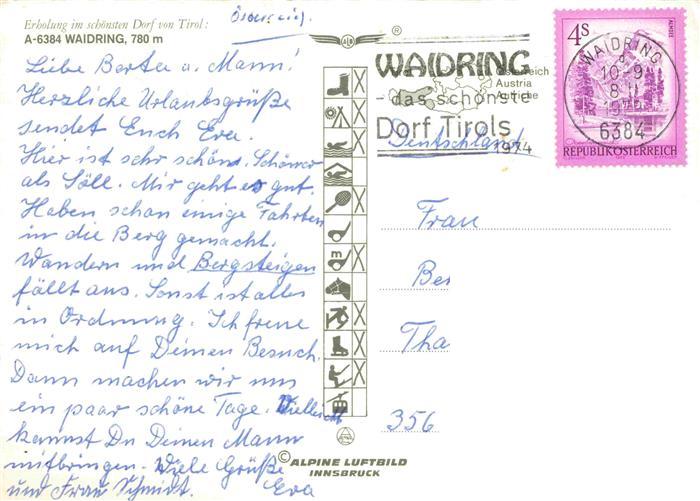 Erholung im schönsten Dorf von Tirol:
A-6384 WAIDRING, 780 m
Liebe Berta u. Mann!
Herzliche Urlaubsgrüße
sendet Euch Eva.
Hier ist sehr schön. Schöner
als Söll. Mir geht es gut.
Haben schon einige Fahrten
in die Berg gemacht.
Wandern und Bergsteigen
fällt aus. Sonst ist alles
in Ordnung. Ich freue
mich auf Deinen Besuch.
Dann machen wir uns
ein paar schöne Tage. Vielleicht
kannst Du Deinen Mann
mitbringen. Viele Grüße
und Frau Schmidt. Eva
ALB ®
WAIDRING
Österreich
Austria
das schönste
Dorf Tirols
1974
4S
WAIDRING
10.-9.
6384
REPUBLIK ÖSTERREICH
Deutschland
Frau
Ber
Tha
356
© ALPINE LUFTBILD
INNSBRUCK